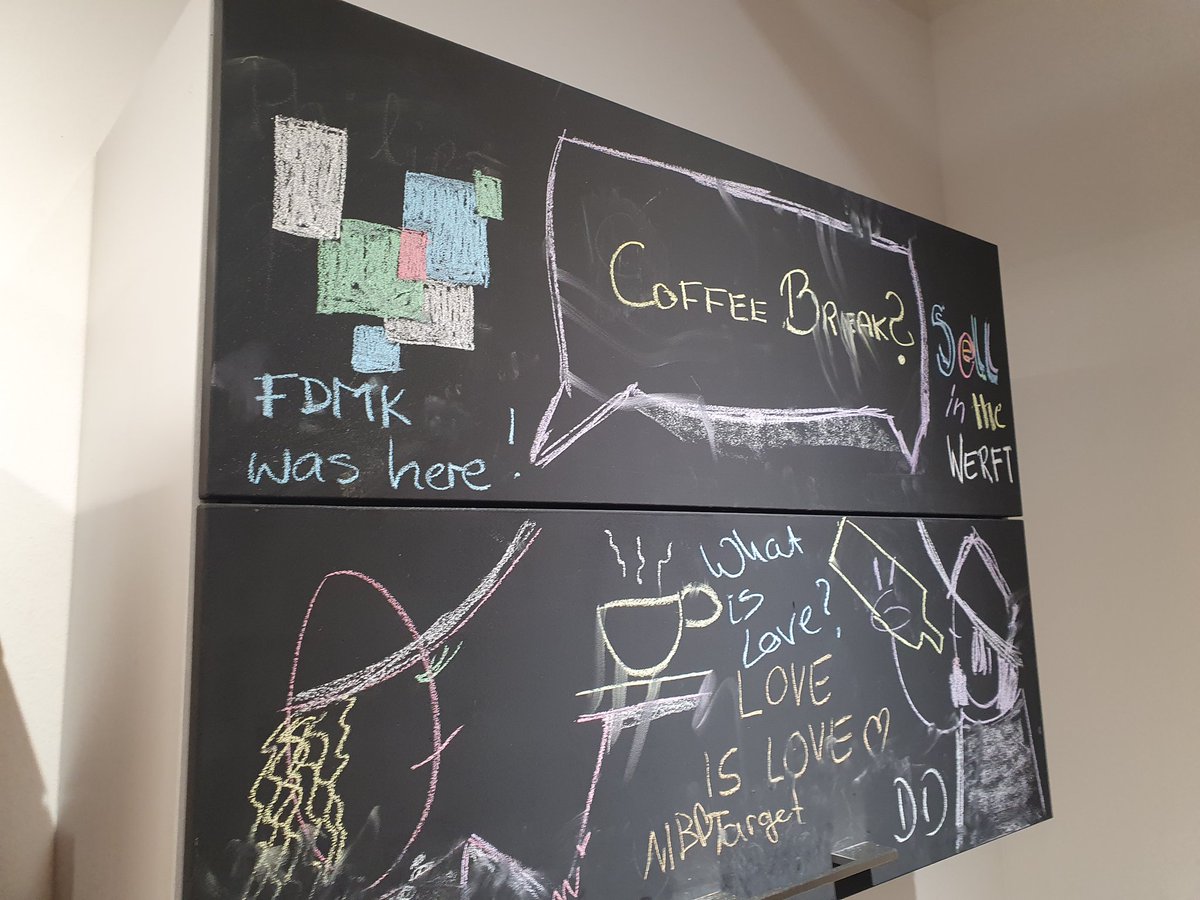 COFFEE BREAK?
Sell
in the
WERFT
FDMK
was here!
What
is
Love?
LOVE
IS LOVE
MBDTarget
DD